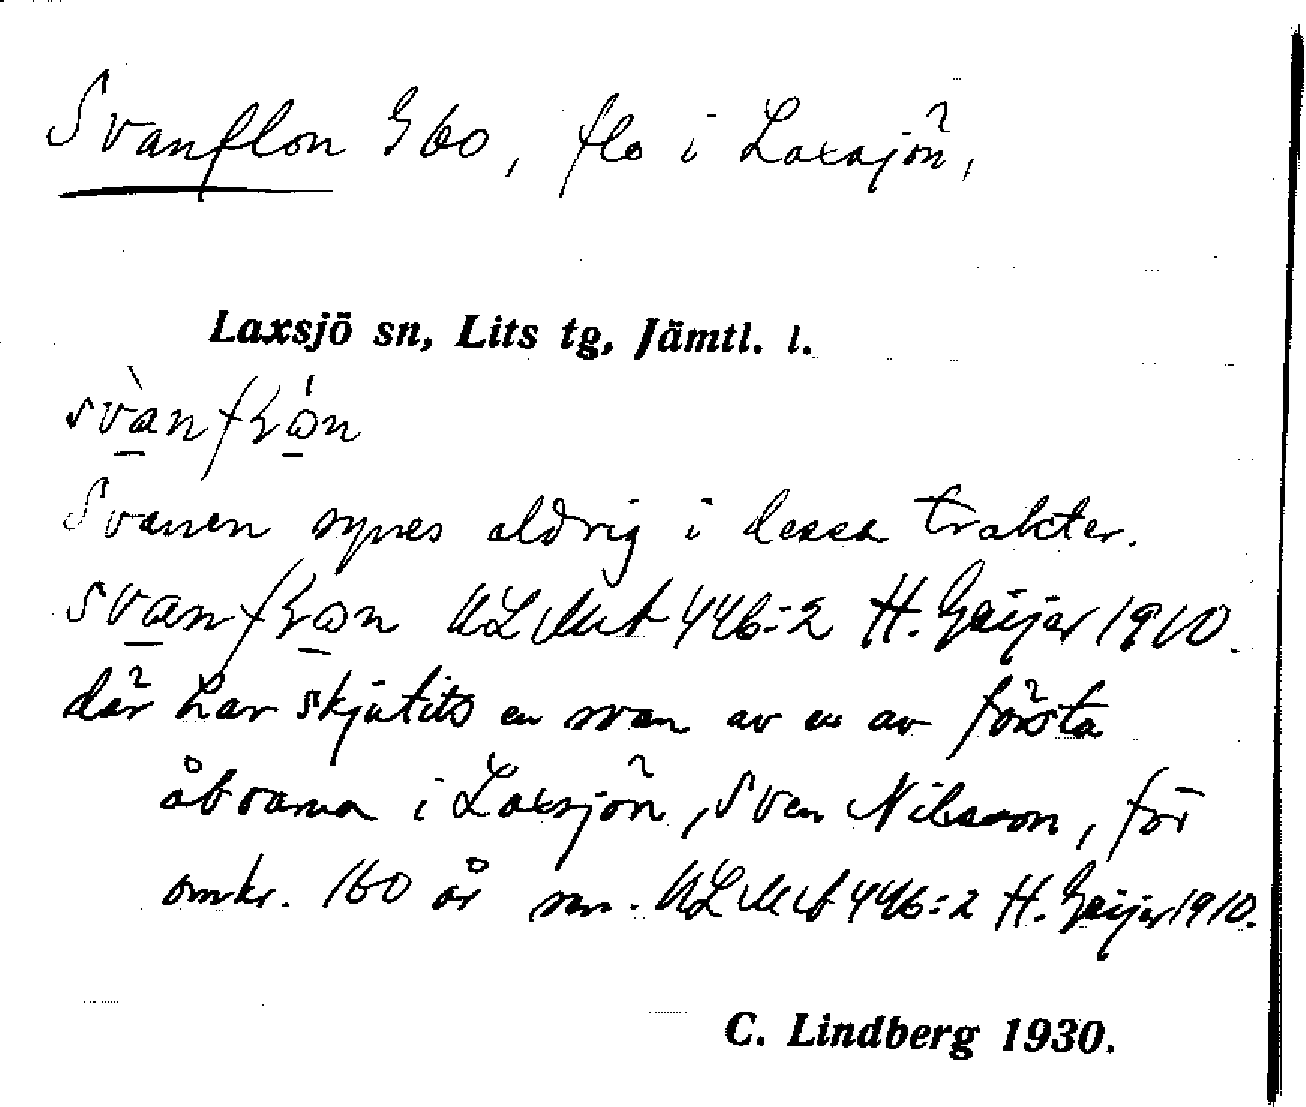 Svanflon G60, flo i Laxsjön,
Laxsjö sn, Lits tg, Jämtl. l.
Svanen synes aldrig i dessa trakter.
ULMA 446:2 H. Geijer 1910.
där har skjutits en svan av en av första
åboarna i Laxsjön, Sven Nilsson, för
omkr. 160 år sen. ULMA 446:2 H. Geijer 1910.
C. Lindberg 1930.